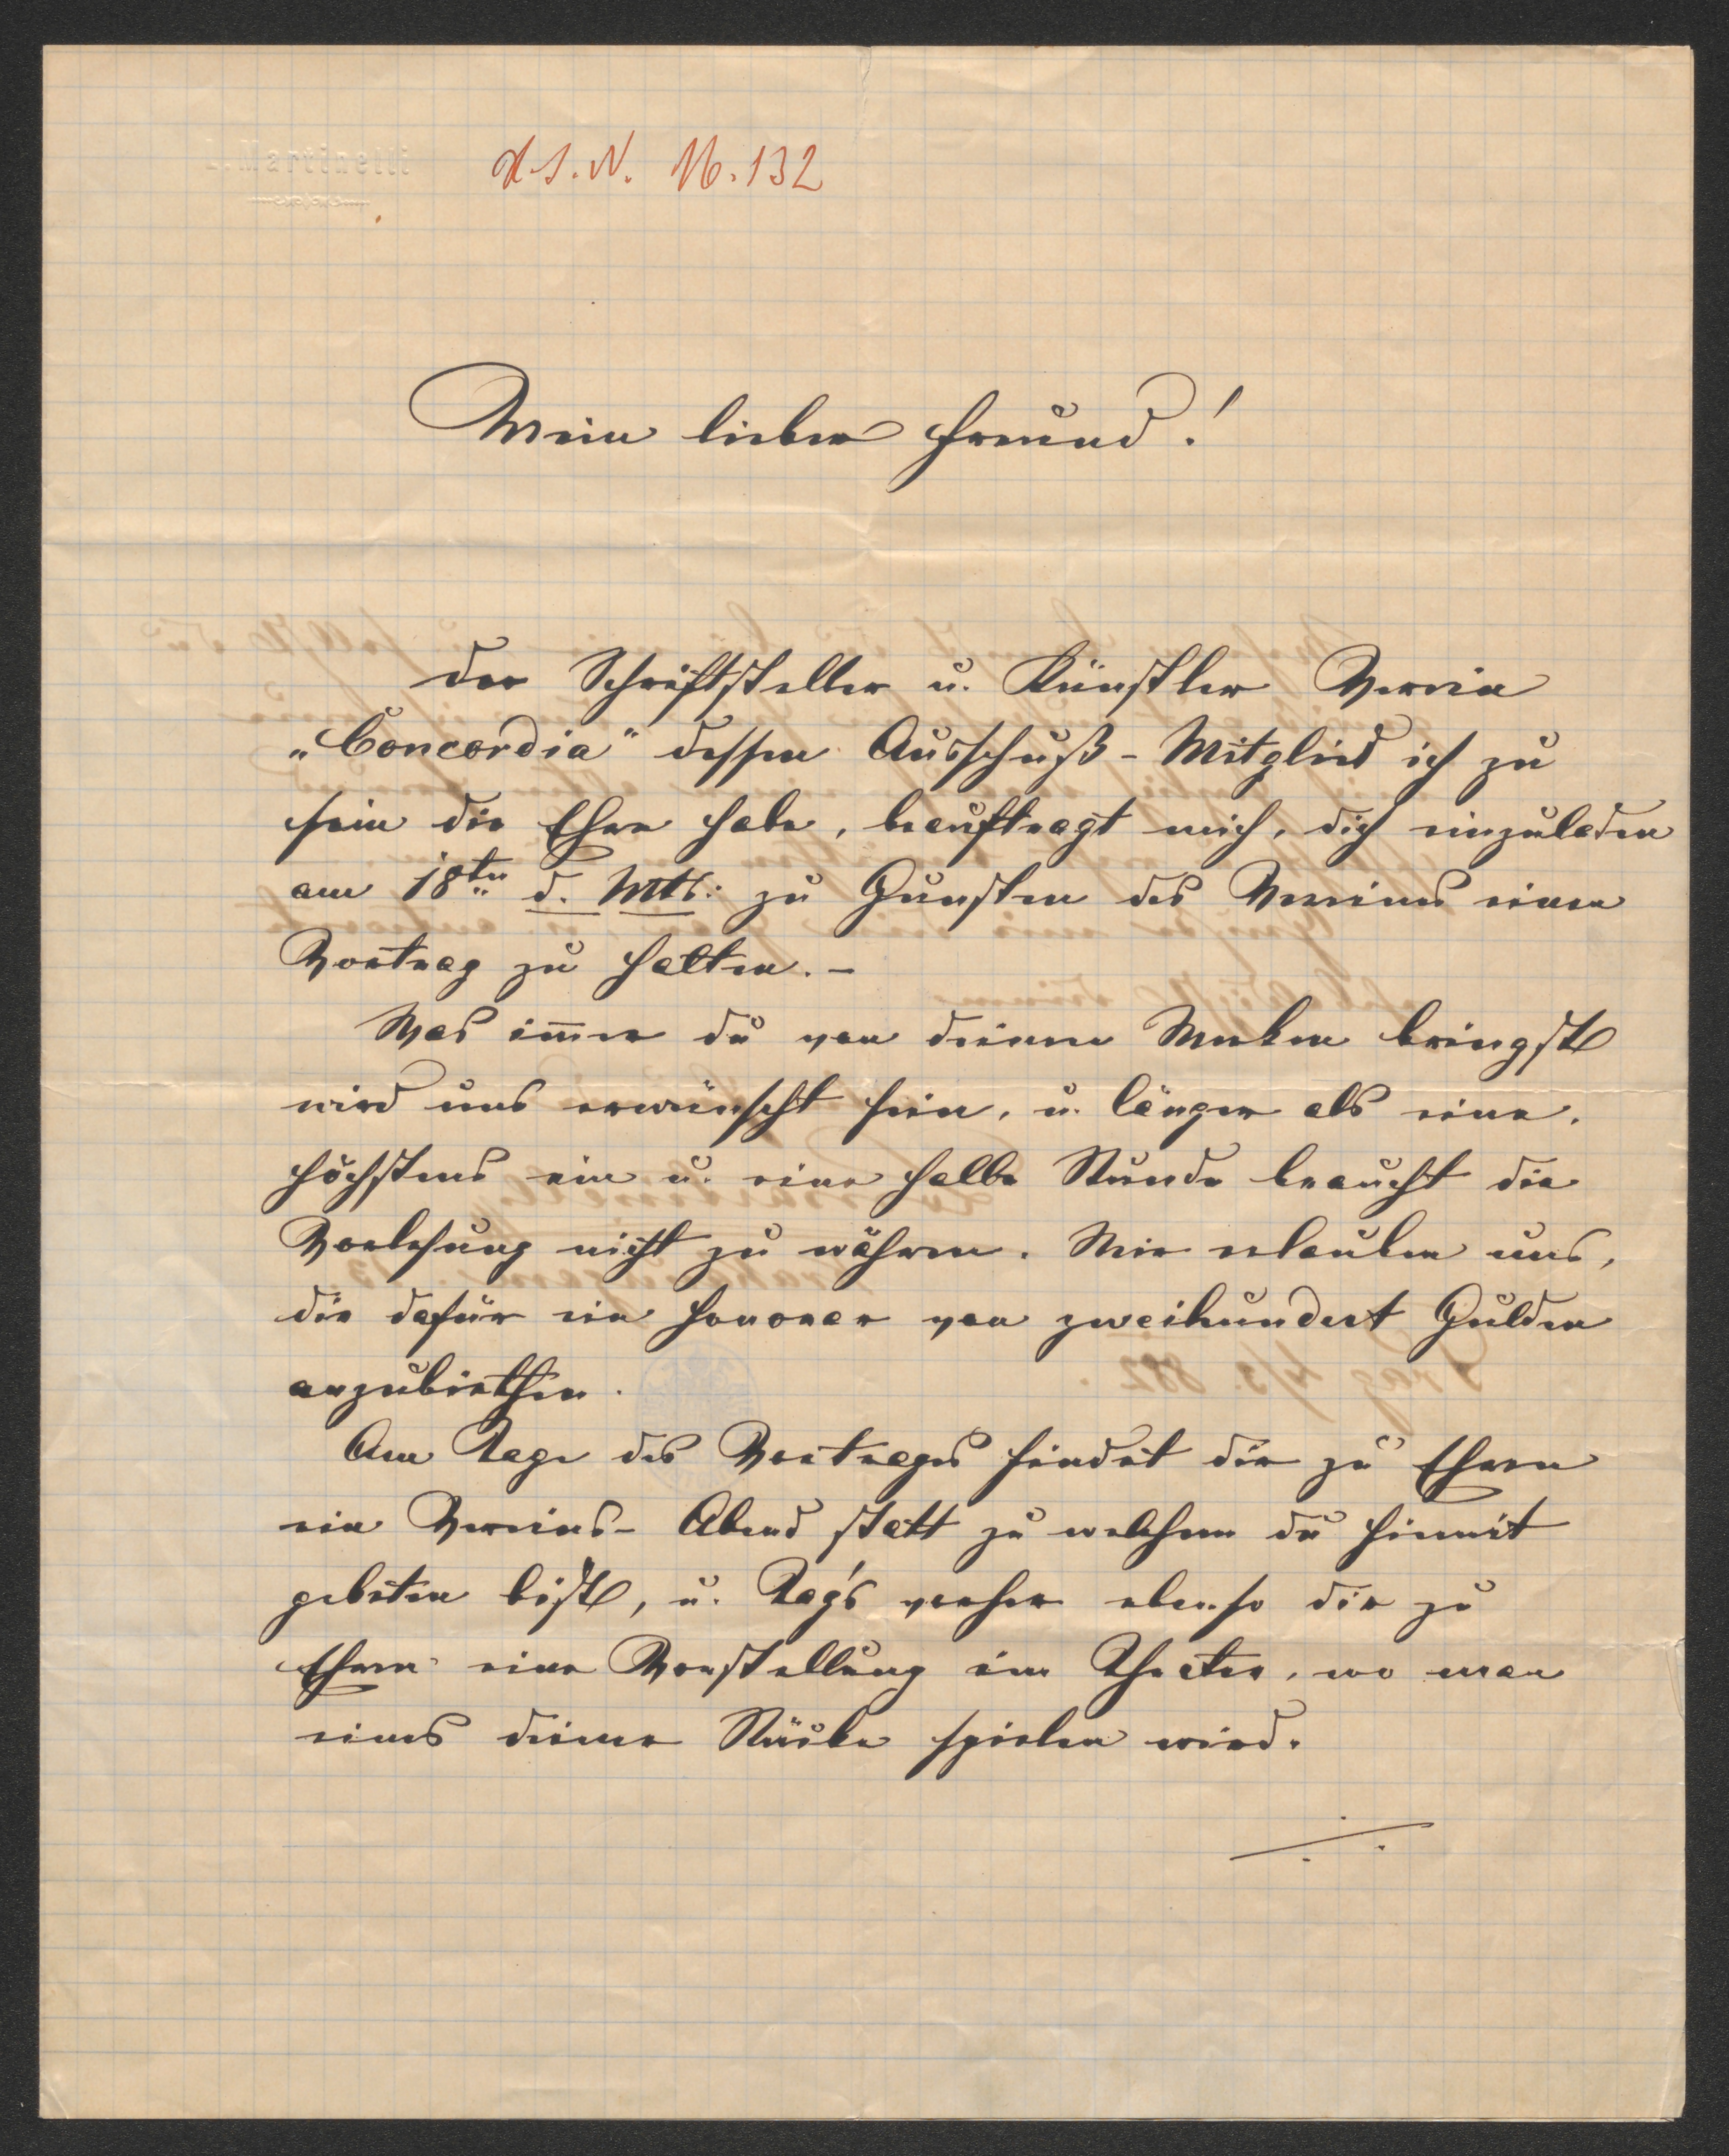 L. Martinelli
H.I.N. 16.132
Mein lieber Freund!
der Schriftsteller u. Künstler Verein
„Concordia" dessen Ausschuß-Mitglied ich zu
sein die Ehre habe, beauftragt mich, dich einzuladen
am 18ten d. Mts: zu Gunsten des Vereines einen
Vortrag zu halten. –
Was im̅er du von deinen Werken bringst
wird uns erwünscht sein, u. länger als eine,
höchstens ein u. eine halbe Stunde braucht die
Vorlesung nicht zu währen. Wir erlauben uns,
dir dafür ein Honorar von zweihundert Gulden
anzubiethen.
Am Tage des Vortrages findet dir zu Ehren
ein Vereins-Abend statt zu welchem du hiemit
gebeten bist, u. Tag's vorher ebenso dir zu
Ehren eine Vorstellung im Theater, wo man
eines deiner Stücke spielen wird.
./.